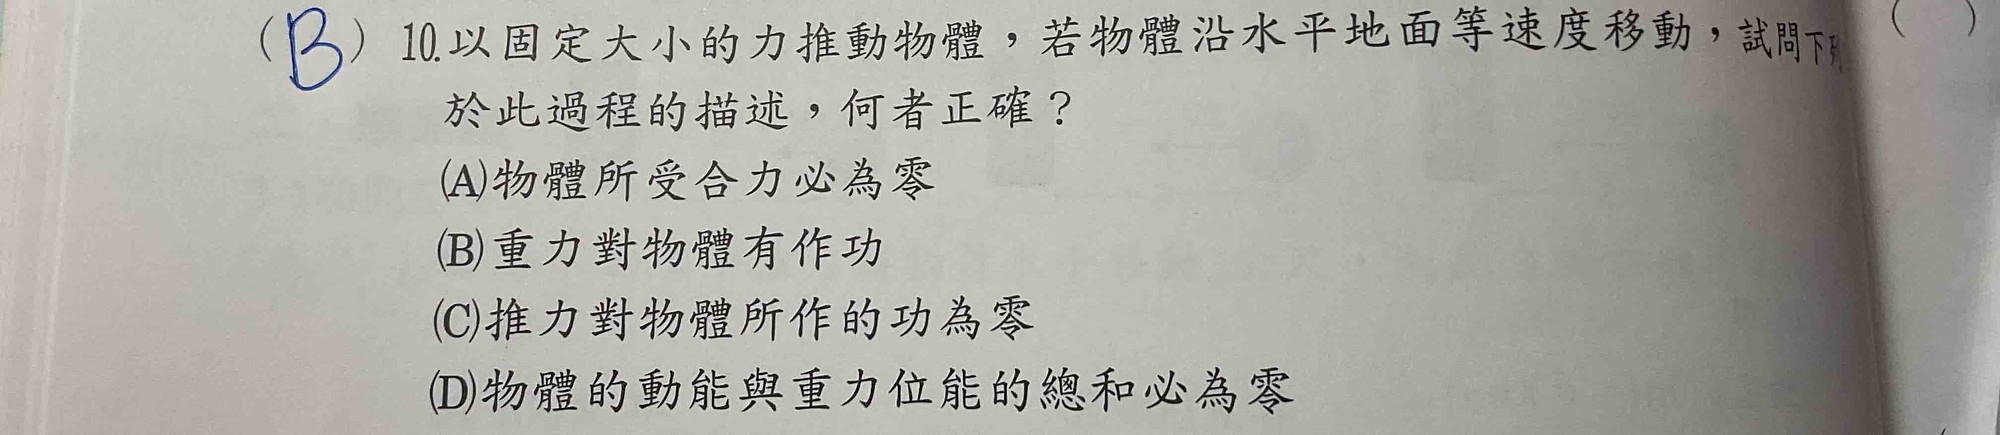 (B) 10.以固定大小的力推動物體，若物體沿水平地面等速度移動，試問下列
於此過程的描述，何者正確？
(A)物體所受合力必為零
(B)重力對物體有作功
(C)推力對物體所作的功為零
(D)物體的動能與重力位能的總和必為零
( )